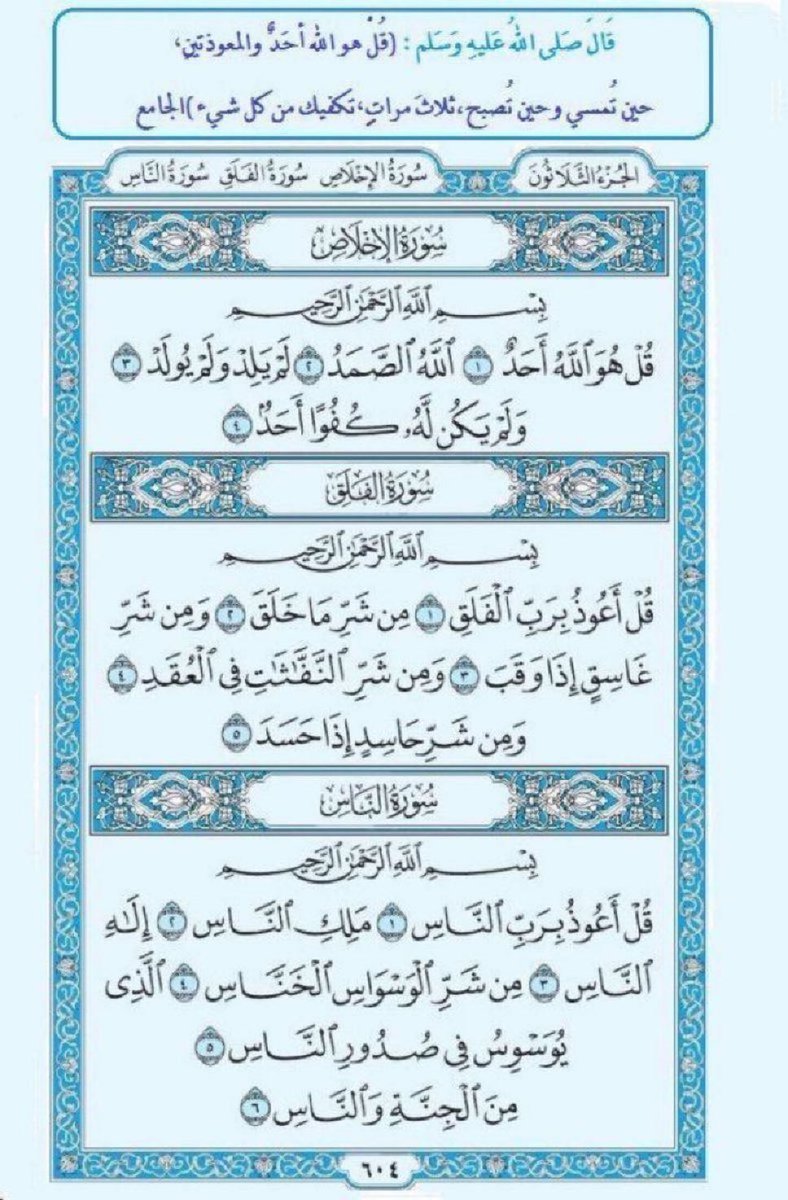 قَالَ صَلى اللهُ عَليهِ وَسَلم : (قُلْ هو الله أحَدٌ والمعوذتينِ،
حين تُمسي وحين تُصبح،ثلاثَ مراتٍ،تكفيك من كل شيء)الجامع
الجُزْءُ الثَّلَاثُونَ
سُورَةُ الإِخْلَاصِ سُورَةُ الفَلَقِ سُورَةُ النَّاسِ
سُورَةُ الإِخْلَاصِ
بِسْمِ ٱللَّهِ ٱلرَّحْمَٰنِ ٱلرَّحِيمِ
قُلْ هُوَ ٱللَّهُ أَحَدٌ ١ ٱللَّهُ ٱلصَّمَدُ ٢ لَمْ يَلِدْ وَلَمْ يُولَدْ ٣
وَلَمْ يَكُن لَّهُۥ كُفُوًا أَحَدٌۢ ٤
سُورَةُ الفَلَقِ
بِسْمِ ٱللَّهِ ٱلرَّحْمَٰنِ ٱلرَّحِيمِ
قُلْ أَعُوذُ بِرَبِّ ٱلْفَلَقِ ١ مِن شَرِّ مَا خَلَقَ ٢ وَمِن شَرِّ
غَاسِقٍ إِذَا وَقَبَ ٣ وَمِن شَرِّ ٱلنَّفَّٰثَٰتِ فِى ٱلْعُقَدِ ٤
وَمِن شَرِّ حَاسِدٍ إِذَا حَسَدَ ٥
سُورَةُ النَّاسِ
بِسْمِ ٱللَّهِ ٱلرَّحْمَٰنِ ٱلرَّحِيمِ
قُلْ أَعُوذُ بِرَبِّ ٱلنَّاسِ ١ مَلِكِ ٱلنَّاسِ ٢ إِلَٰهِ
ٱلنَّاسِ ٣ مِن شَرِّ ٱلْوَسْوَاسِ ٱلْخَنَّاسِ ٤ ٱلَّذِى
يُوَسْوِسُ فِى صُدُورِ ٱلنَّاسِ ٥
مِنَ ٱلْجِنَّةِ وَٱلنَّاسِ ٦
٦٠٤